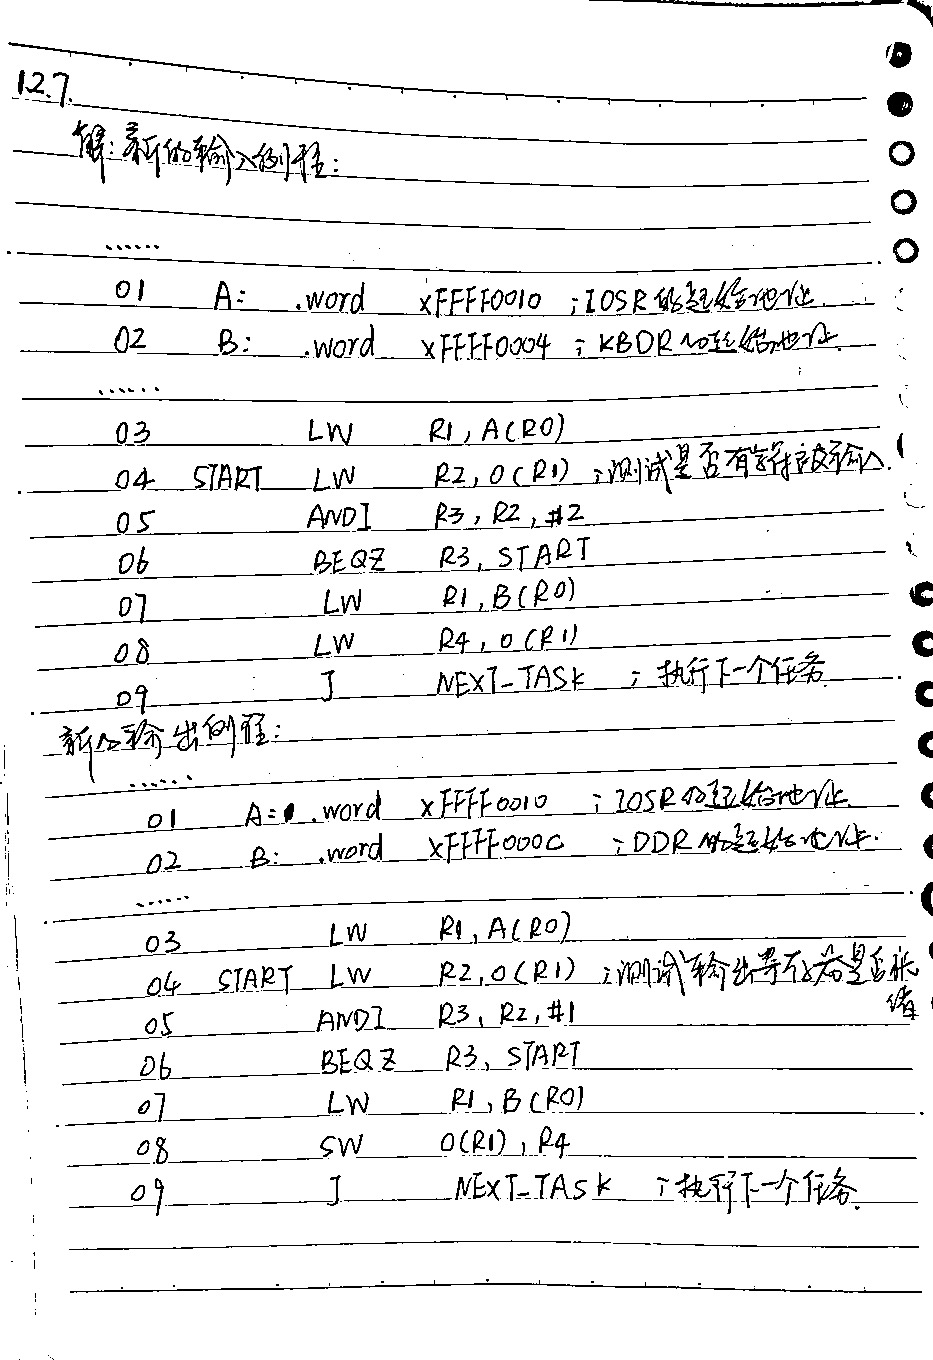 12.7.
解：新的输入例程：
......
01 A: .word xFFFF0010 ;IOSR的起始地址.
02 B: .word xFFFF0004 ; KBDR的起始地址.
......
03 LW R1, A(R0)
04 START LW R2, 0(R1) ;测试是否有字符被输入.
05 ANDI R3, R2, #2
06 BEQZ R3, START
07 LW R1, B(R0)
08 LW R4, 0(R1)
09 J NEXT_TASK ; 执行下一个任务.
新的输出例程：
......
01 A: .word xFFFF0010 ; IOSR的起始地址.
02 B: .word xFFFF000C ; DDR的起始地址.
......
03 LW R1, A(R0)
04 START LW R2, 0(R1) ;测试输出寄存器是否就
绪
05 ANDI R3, R2, #1
06 BEQZ R3, START
07 LW R1, B(R0)
08 SW 0(R1), R4
09 J NEXT_TASK ;执行下一个任务.